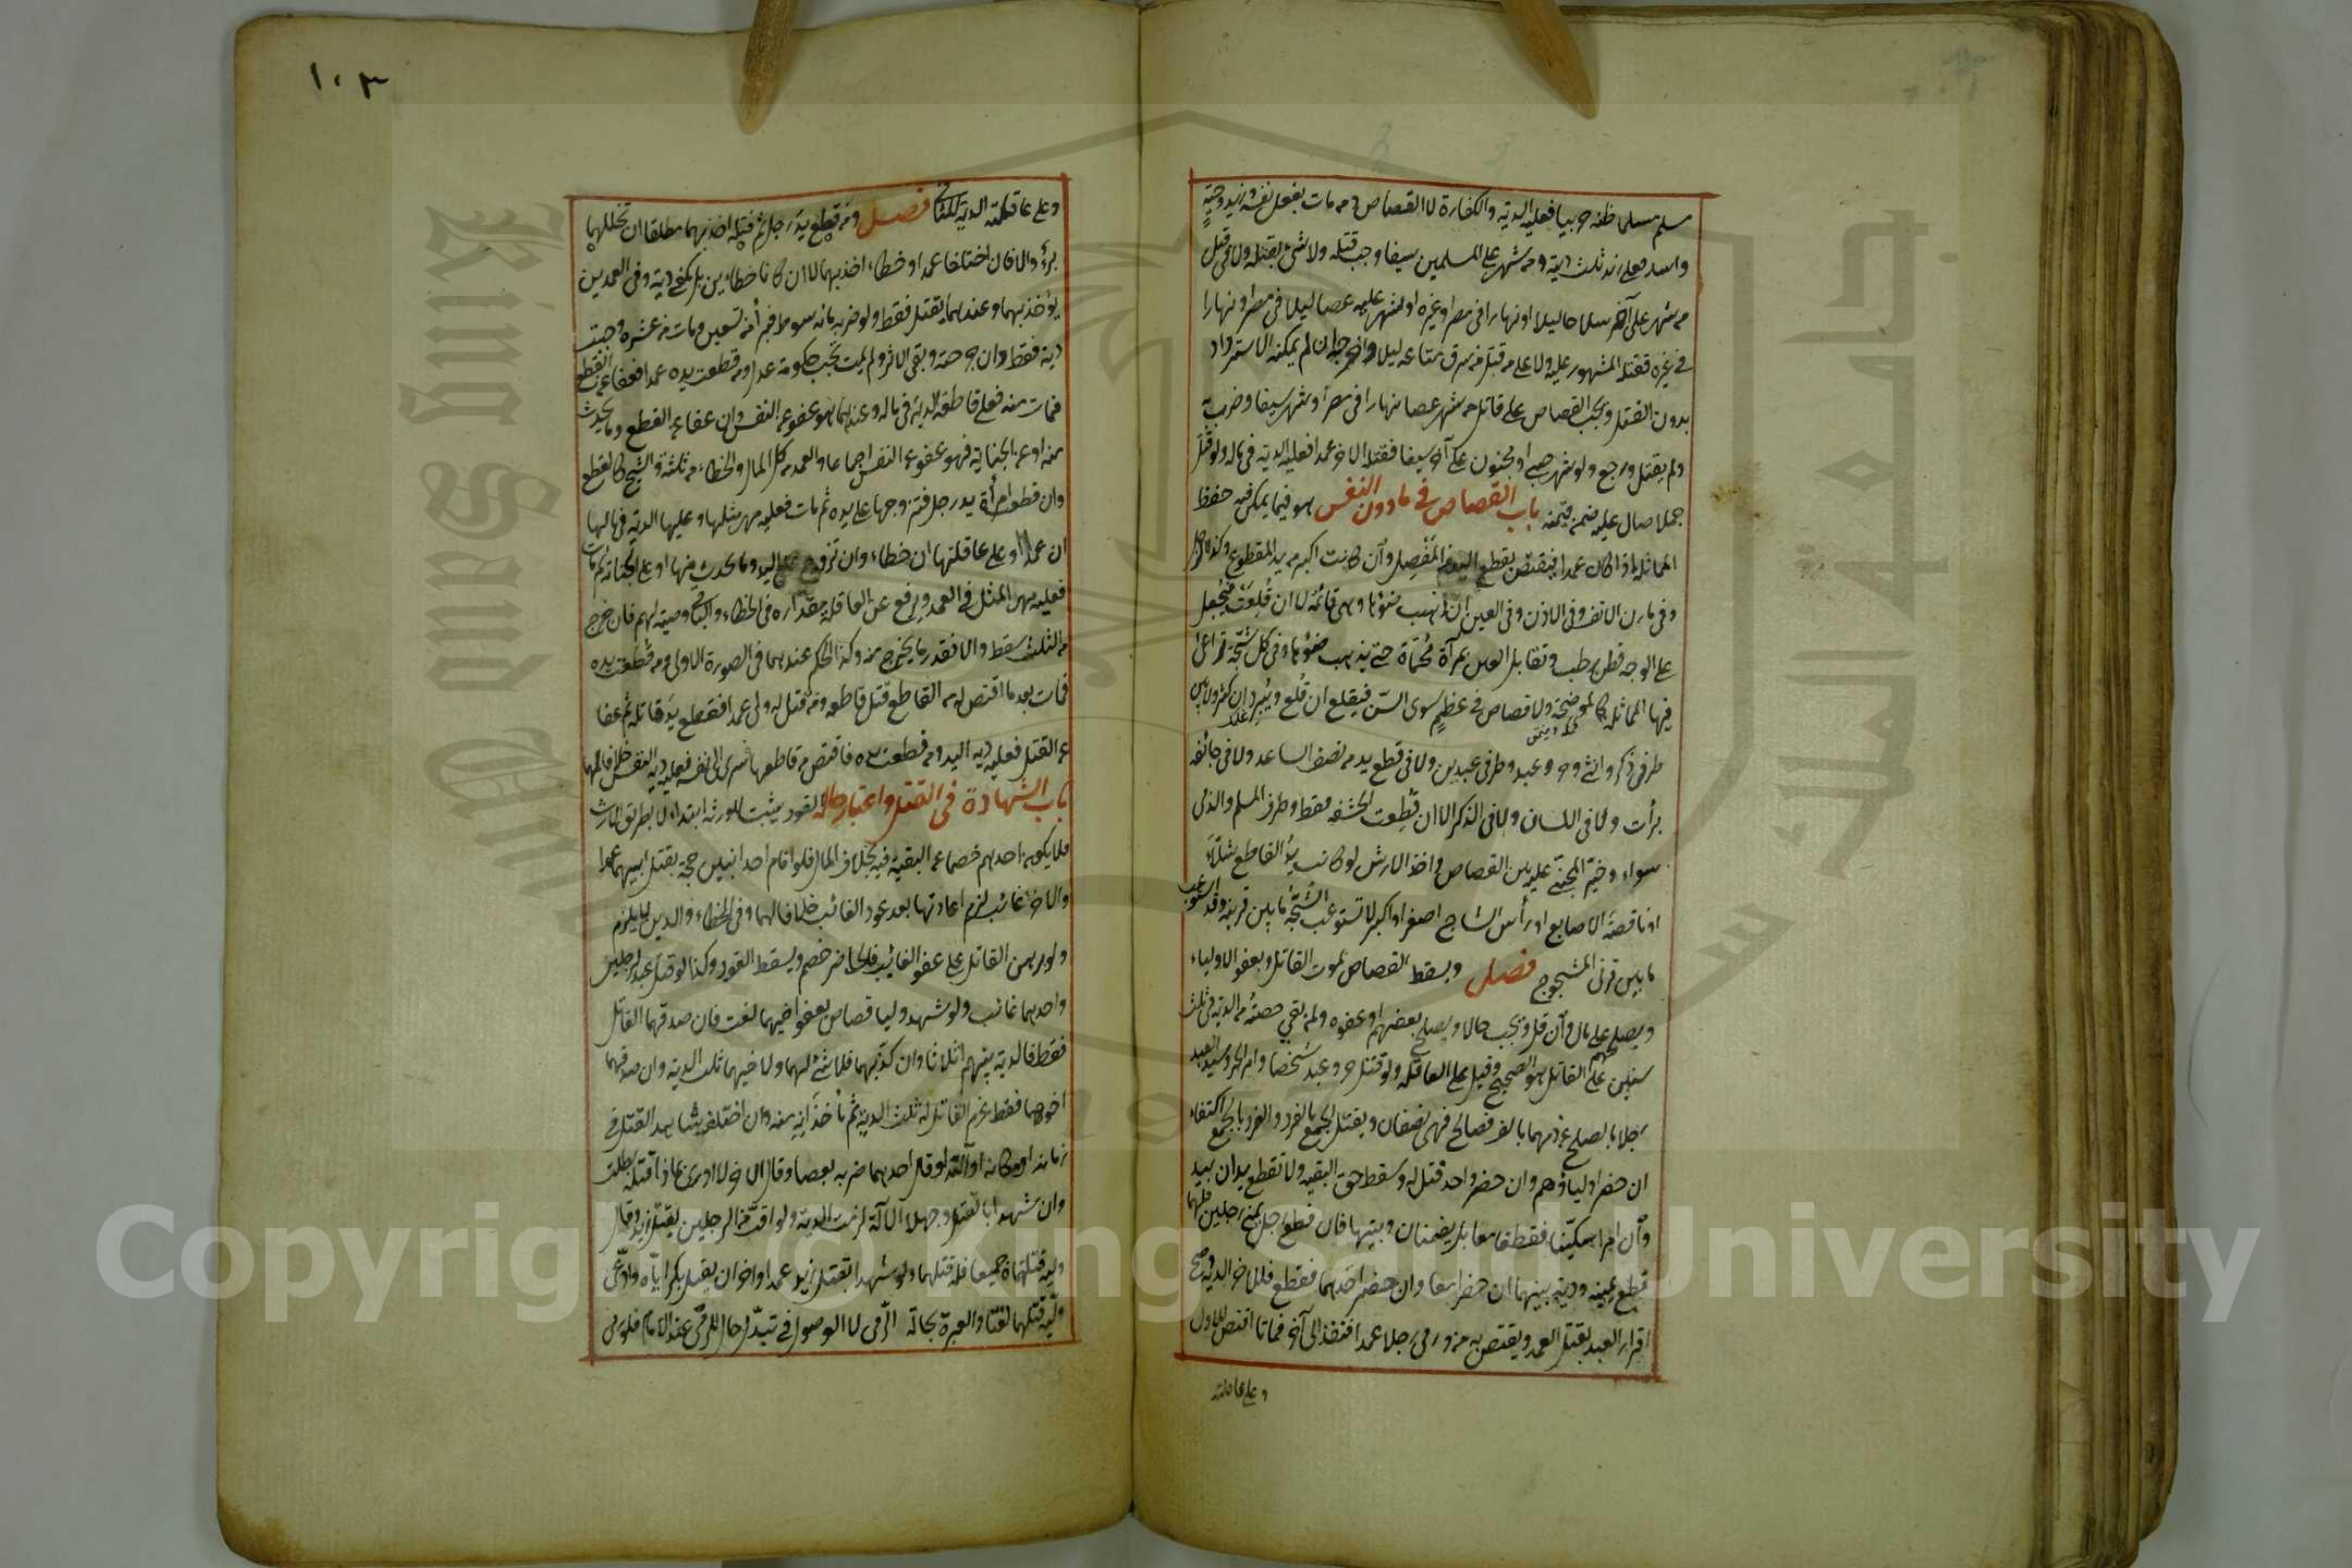 مسلم مسلما ظنه حربيا فعليه الدية والكفارة لا القصاص ومن مات بفعل نفسه وزيد وحية
واسد فعلى زيد ثلث ديته ومن شهر على المسلمين سيفا وجب قتله ولا شئ بقتله ولا في قتل
من شهر على آخر سلاحا ليلا او نهارا في مصر او غيره او شهر عليه عصا ليلا في مصر او نهارا
في غيره فقتله المشهور عليه ولا على من قتل من سرق متاعه ليلا واخرجه ان لم يمكنه الاسترداد
بدون القتل ويجب القصاص على قاتل من شهر عصا نهارا في مصر او شهر سيفا وضرب به
ولم يقتل ورجع ولو شهر صبي او مجنون على آخر سيفا فقتله الآخر عمدا فعليه الدية في ماله ولو قتل
جملا صال عليه ضمن قيمته باب القصاص في ما دون النفس هو فيما يمكن فيه حفظ
المماثلة اذا كان عمدا فيقتص بقطع اليد من المفصل وان كانت اكبر من يد المقطوع وكذا الرجل
وفي مارن الانف وفي الاذن وفي العين ان ذهب ضوئها وهي قائمة لا ان قلعت فيجعل
على الوجه قطن رطب وتقابل العين بمرآة محماة حتى يذهب ضوئها وفي كل شجة تراعى
فيها المماثلة كالموضحة ولا قصاص في عظم سوى السن فيقلع ان قلع ويبرد ان كسر ولا بين
طرفي ذكر وانثى وحر وعبد وطرفي عبدين ولا في قطع يد من نصف الساعد ولا في جائفة
برأت ولا في اللسان ولا في الذكر الا ان قطعت الحشفة فقط وطرف المسلم والذمي
سواء وخير المجني عليه بين القصاص واخذ الارش لو كانت يد القاطع شلاء
او ناقصة الاصابع او رأس الشاج اصغر او اكبر لا تستوعب الشجة ما بين قرنيه وقد استوعبت
ما بين قرني المشجوج فصل ويسقط القصاص بموت القاتل وبعفو الاولياء
وبصلحهم على مال وان قل ويجب حالا وبصلح بعضهم او عفوه ولمن بقي حصته من الدية في ثلث
سنين على القاتل هو الصحيح وقيل على العاقلة ولو قتل حر وعبد شخصا وامر الحر وسيد العبد
رجلا بالصلح عن دمهما بالف فصالح فهي نصفان ويقتل الجمع بالفرد والفرد بالجمع اكتفاء
ان حضر اولياؤهم وان حضر واحد قتل له وسقط حق البقية ولا تقطع يدان بيد
وان امرا سكينا فقطعا معا بل يضمنان ديتها فان قطع رجل يمنى رجلين فلهما
قطع يمينه ودية بينهما ان حضرا معا وان حضر احدهما فقطع فللآخر الدية وصح
اقرار العبد بقتل العمد ويقتص به ومن رمى رجلا عمدا فنفذ الى آخر فماتا اقتص للاول
وعلى عاقلته
١٠٣
وعلى عاقلته الدية للثاني فصل ومن قطع يد رجل ثم قتله اخذ بهما مطلقا ان تخللهما
برء والا فان اختلفا عمدا او خطاء اخذ بهما لا ان كانا خطائين بل تكفي دية وفي العمدين
يؤاخذ بهما وعندهما يقتل فقط ولو ضربه مائة سوط فبرأ من تسعين ومات من عشرة وجبت
دية فقط وان جرحته وبقي الاثر ولم يمت تجب حكومة عدل ومن قطعت يده عمدا فعفا عن القطع
فمات منه فعلى قاطعه الدية في ماله وعندهما هو عفو عن النفس وان عفا عن القطع وما يحدث
منه او عن الجناية فهو عفو عن النفس اجماعا والعمد من كل المال والخطاء من ثلثه والشج كالقطع
وان قطعت امرأة يد رجل فتزوجها على يده ثم مات فعليه مهر مثلها وعليها الدية في مالها
ان عمدا وعلى عاقلتها ان خطاء وان تزوج على اليد وما يحدث منها او على الجناية ثم مات
فعليه مهر المثل في العمد ويرفع عن العاقلة مقداره في الخطاء والباقي وصية لهم فان خرج
من الثلث سقط والا فقدر ما يخرج منه وكذا الحكم عندهما في الصورة الاولى ومن قطعت يده
فمات بعد ما اقتص له من القاطع قتل قاطعه ومن قتل له ولي عمدا فقطع يد قاتله ثم عفا
عن القتل فعليه دية اليد ومن قطعت يده فاقتص من قاطعها فسرى الى نفسه فعليه دية النفس خلافا لهما
باب الشهادة في القتل واعتبار حاله القود يثبت للورثة ابتداء لا بطريق الارث
فلا يكون احدهم خصما عن البقية فيه بخلاف المال فلو اقام احد ابنين حجة بقتل ابيهما عمدا
والآخر غائب لزم اعادتها بعد عود الغائب خلافا لهما وفي الخطاء والدين لا يلزم
ولو برهن القاتل على عفو الغائب فالحاضر خصم ويسقط القود وكذا لو قتل عبد لرجلين
واحدهما غائب ولو شهد وليا قصاص بعفو اخيهما لغت فان صدقهما القاتل
فقط فالدية بينهم اثلاثا وان كذبهما فلا شئ لهما ولاخيهما ثلث الدية وان صدقهما
اخوهما فقط غرم القاتل له ثلث الدية ثم يأخذانه منه وان اختلف شاهدا القتل في
زمانه او مكانه او آلته او قال احدهما ضربه بعصا وقال الآخر لا ادري بماذا قتله بطلت
وان شهدا بالقتل وجهلا الآلة لزمت الدية ولو اقر كل من الرجلين بقتل زيد وقال
وليه قتلتماه جميعا فله قتلهما ولو شهدا بقتل زيد عمدا وآخران بقتل بكر اياه وادعى
وليه قتلهما لغتا والعبرة بحالة الرمي لا الوصول في تبدل حال المرمي عند الامام فلو رمى
Copyright © King Saud University